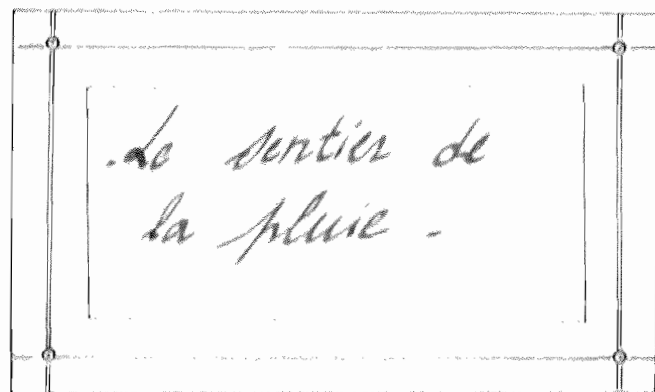 .Le sentier de
la pluie -